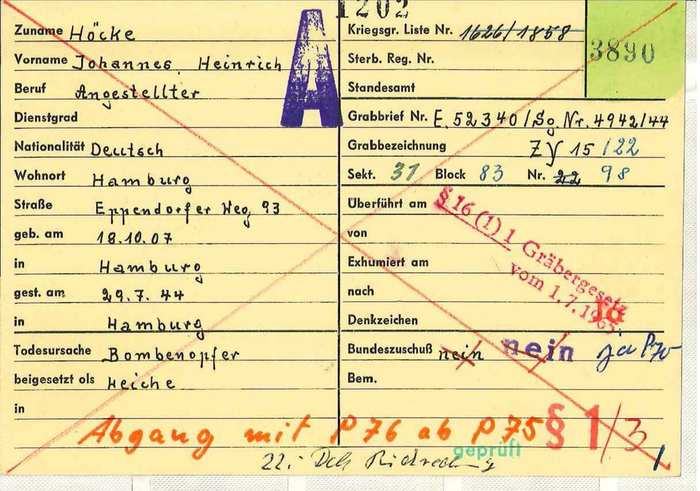 1202
A
3890
Zuname Höcke
Vorname Johannes, Heinrich
Beruf Angestellter
Dienstgrad
Nationalität Deutsch
Wohnort Hamburg
Straße Eppendorfer Weg 93
geb. am 18.10.07
in Hamburg
gest. am 29.7.44
in Hamburg
Todesursache Bombenopfer
beigesetzt als Leiche
in
Kriegsgr. Liste Nr. 1626/1858
Sterb. Reg. Nr.
Standesamt
Grabbrief Nr. E. 52340/Sg. Nr. 4942/44
Grabbezeichnung Zγ 15/22
Sekt. 31 Block 83 Nr. 22 98
Überführt am
von
Exhumiert am
nach
Denkzeichen
Bundeszuschuß nein nein ja P70
Bem.
§ 16 (1) 1 Gräbergesetz
vom 1.7.1965
Abgang mit P76 ab P75 § 1/3
geprüft